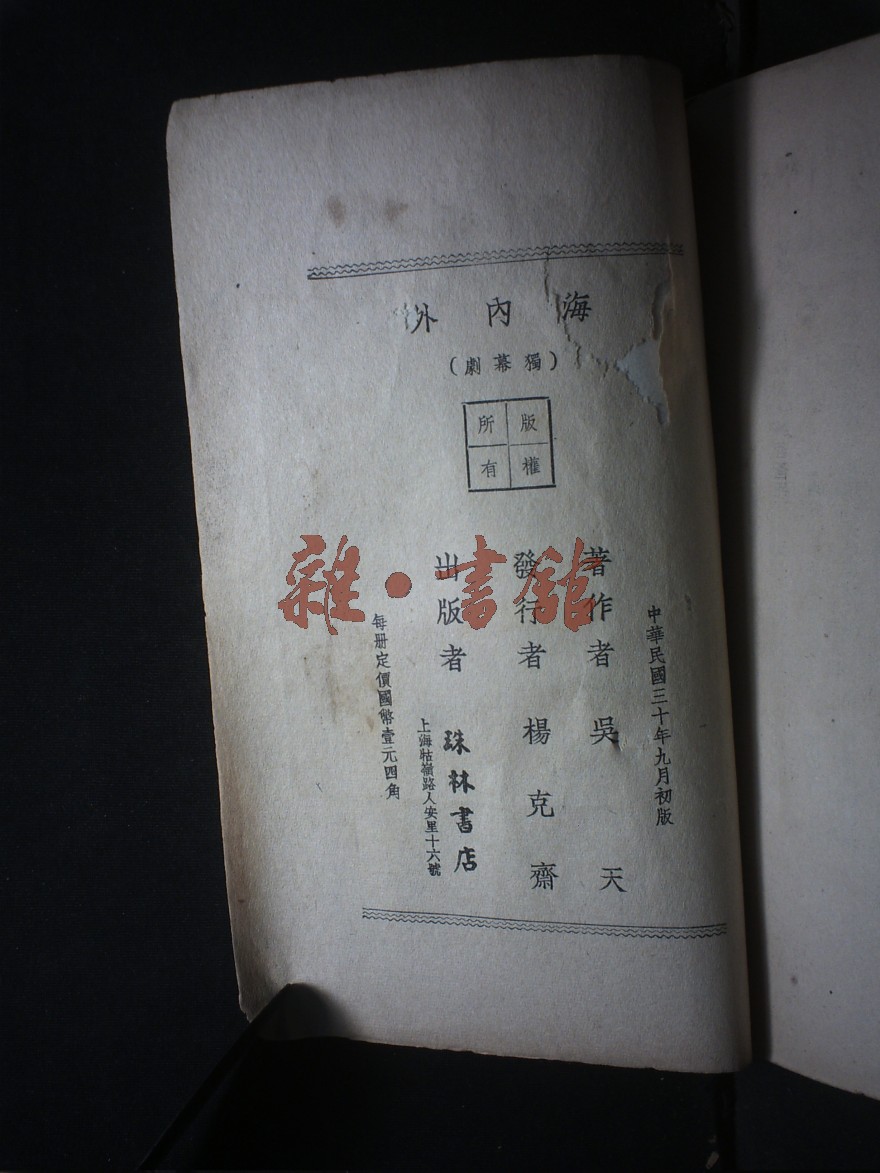 海內外
(獨幕劇)
版權
所有
中華民國三十年九月初版
著作者 吳天
發行者 楊克齋
出版者 珠林書店
上海牯嶺路人安里十六號
每册定價國幣壹元四角
雜·書館